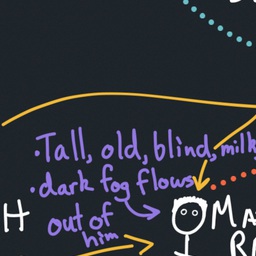 ·Tall, old, blind, milky
·dark fog flows
out of
him
H
MA
RA